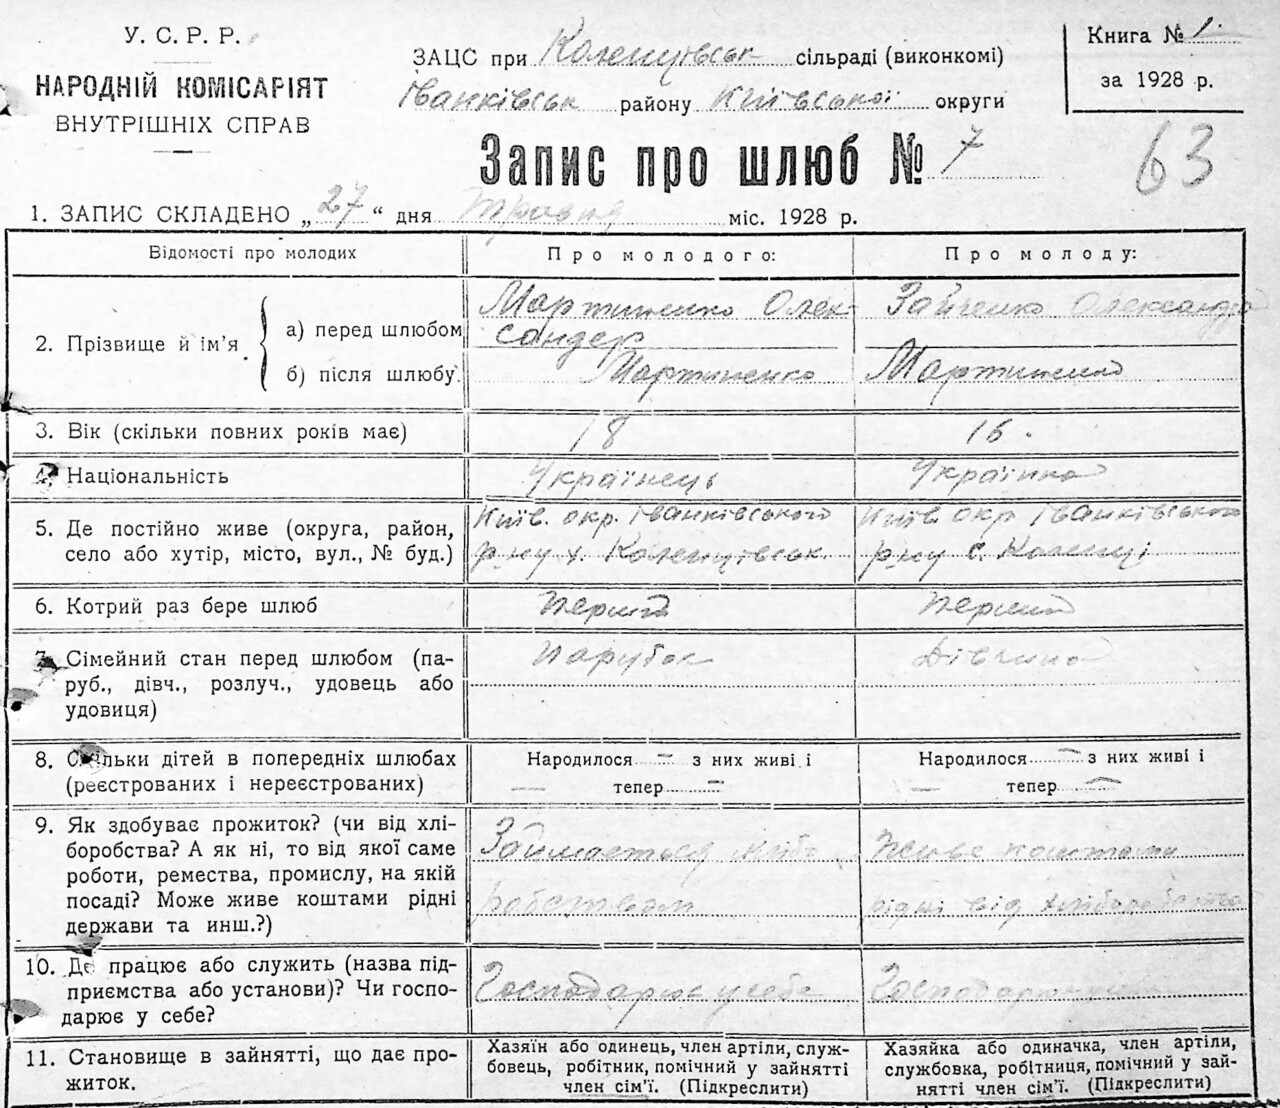 У. С. Р. Р.
НАРОДНІЙ КОМІСАРІЯТ
ВНУТРІШНІХ СПРАВ
ЗАЦС при Коленцівськ сільраді (виконкомі)
Іванківськ району Київської округи
Книга № 1
за 1928 р.
Запис про шлюб № 7
63
1. ЗАПИС СКЛАДЕНО „27“ дня травня міс. 1928 р.
Відомості про молодих
Про молодого:
Про молоду:
2. Прізвище й ім’я
а) перед шлюбом
Мартиненко Олек
сандер
Зайченко Олександра
б) після шлюбу
Мартиненко
Мартиненко
3. Вік (скільки повних років має)
18
16.
4. Національність
Українець
Українка
5. Де постійно живе (округа, район,
село або хутір, місто, вул., № буд.)
Київ. окр. Іванківського
р-ну х. Коленцівськ.
Київ окр Іванківського
р-ну с. Коленці
6. Котрий раз бере шлюб
Перший
Перший
7. Сімейний стан перед шлюбом (па-
руб., дівч., розлуч., удовець або
удовиця)
Парубок
Дівчина
8. Скільки дітей в попередніх шлюбах
(реєстрованих і нереєстрованих)
Народилося — з них живі і
— тепер —
Народилося — з них живі і
— тепер —
9. Як здобуває прожиток? (чи від хлі-
боробства? А як ні, то від якої саме
роботи, ремества, промислу, на якій
посаді? Може живе коштами рідні
держави та инш.?)
Займається хлібо
робством
Живе коштами
рідні від хліборобства
10. Де працює або служить (назва під-
приємства або установи)? Чи госпо-
дарює у себе?
Господарює у себе
11. Становище в зайнятті, що дає про-
житок.
Хазяїн або одинець, член артіли, служ-
бовець, робітник, помічний у зайнятті
член сім’ї. (Підкреслити)
Хазяйка або одиначка, член артіли,
службовка, робітниця, помічний у зай-
нятті член сім’ї. (Підкреслити)